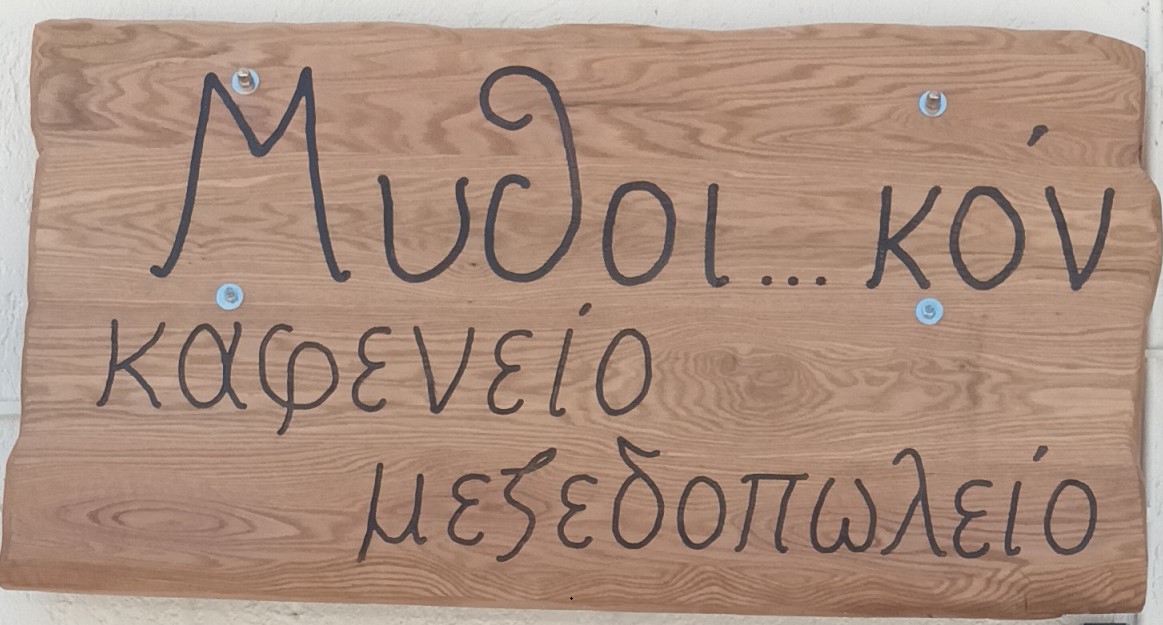 Μυθοι...κόν
καφενείο
μεζεδοπωλείο